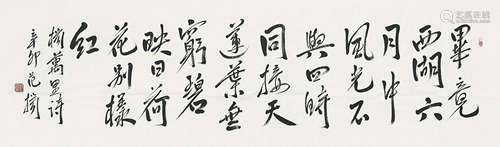 畢竟
西湖六
月中
風光不
與四時
同接天
蓮葉無
窮碧
映日荷
花別樣
紅
楊萬里詩
辛卯范揚